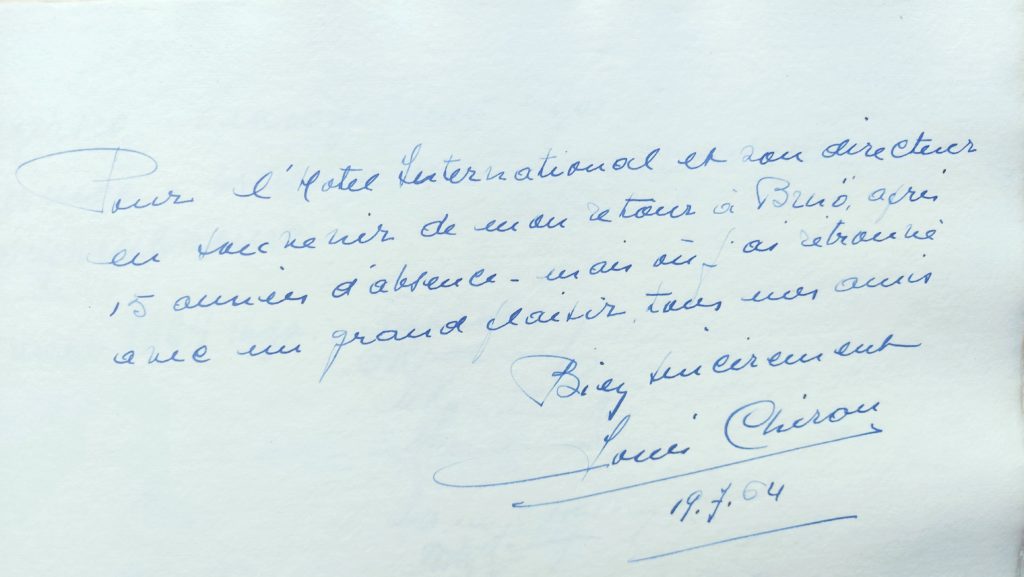 Pour l'Hotel International et son directeur
en souvenir de mon retour à Brnö, après
15 années d'absence - mais où j'ai retrouvé
avec un grand plaisir tous mes amis
Bien sincèrement
Louis Chiron
19.7.64